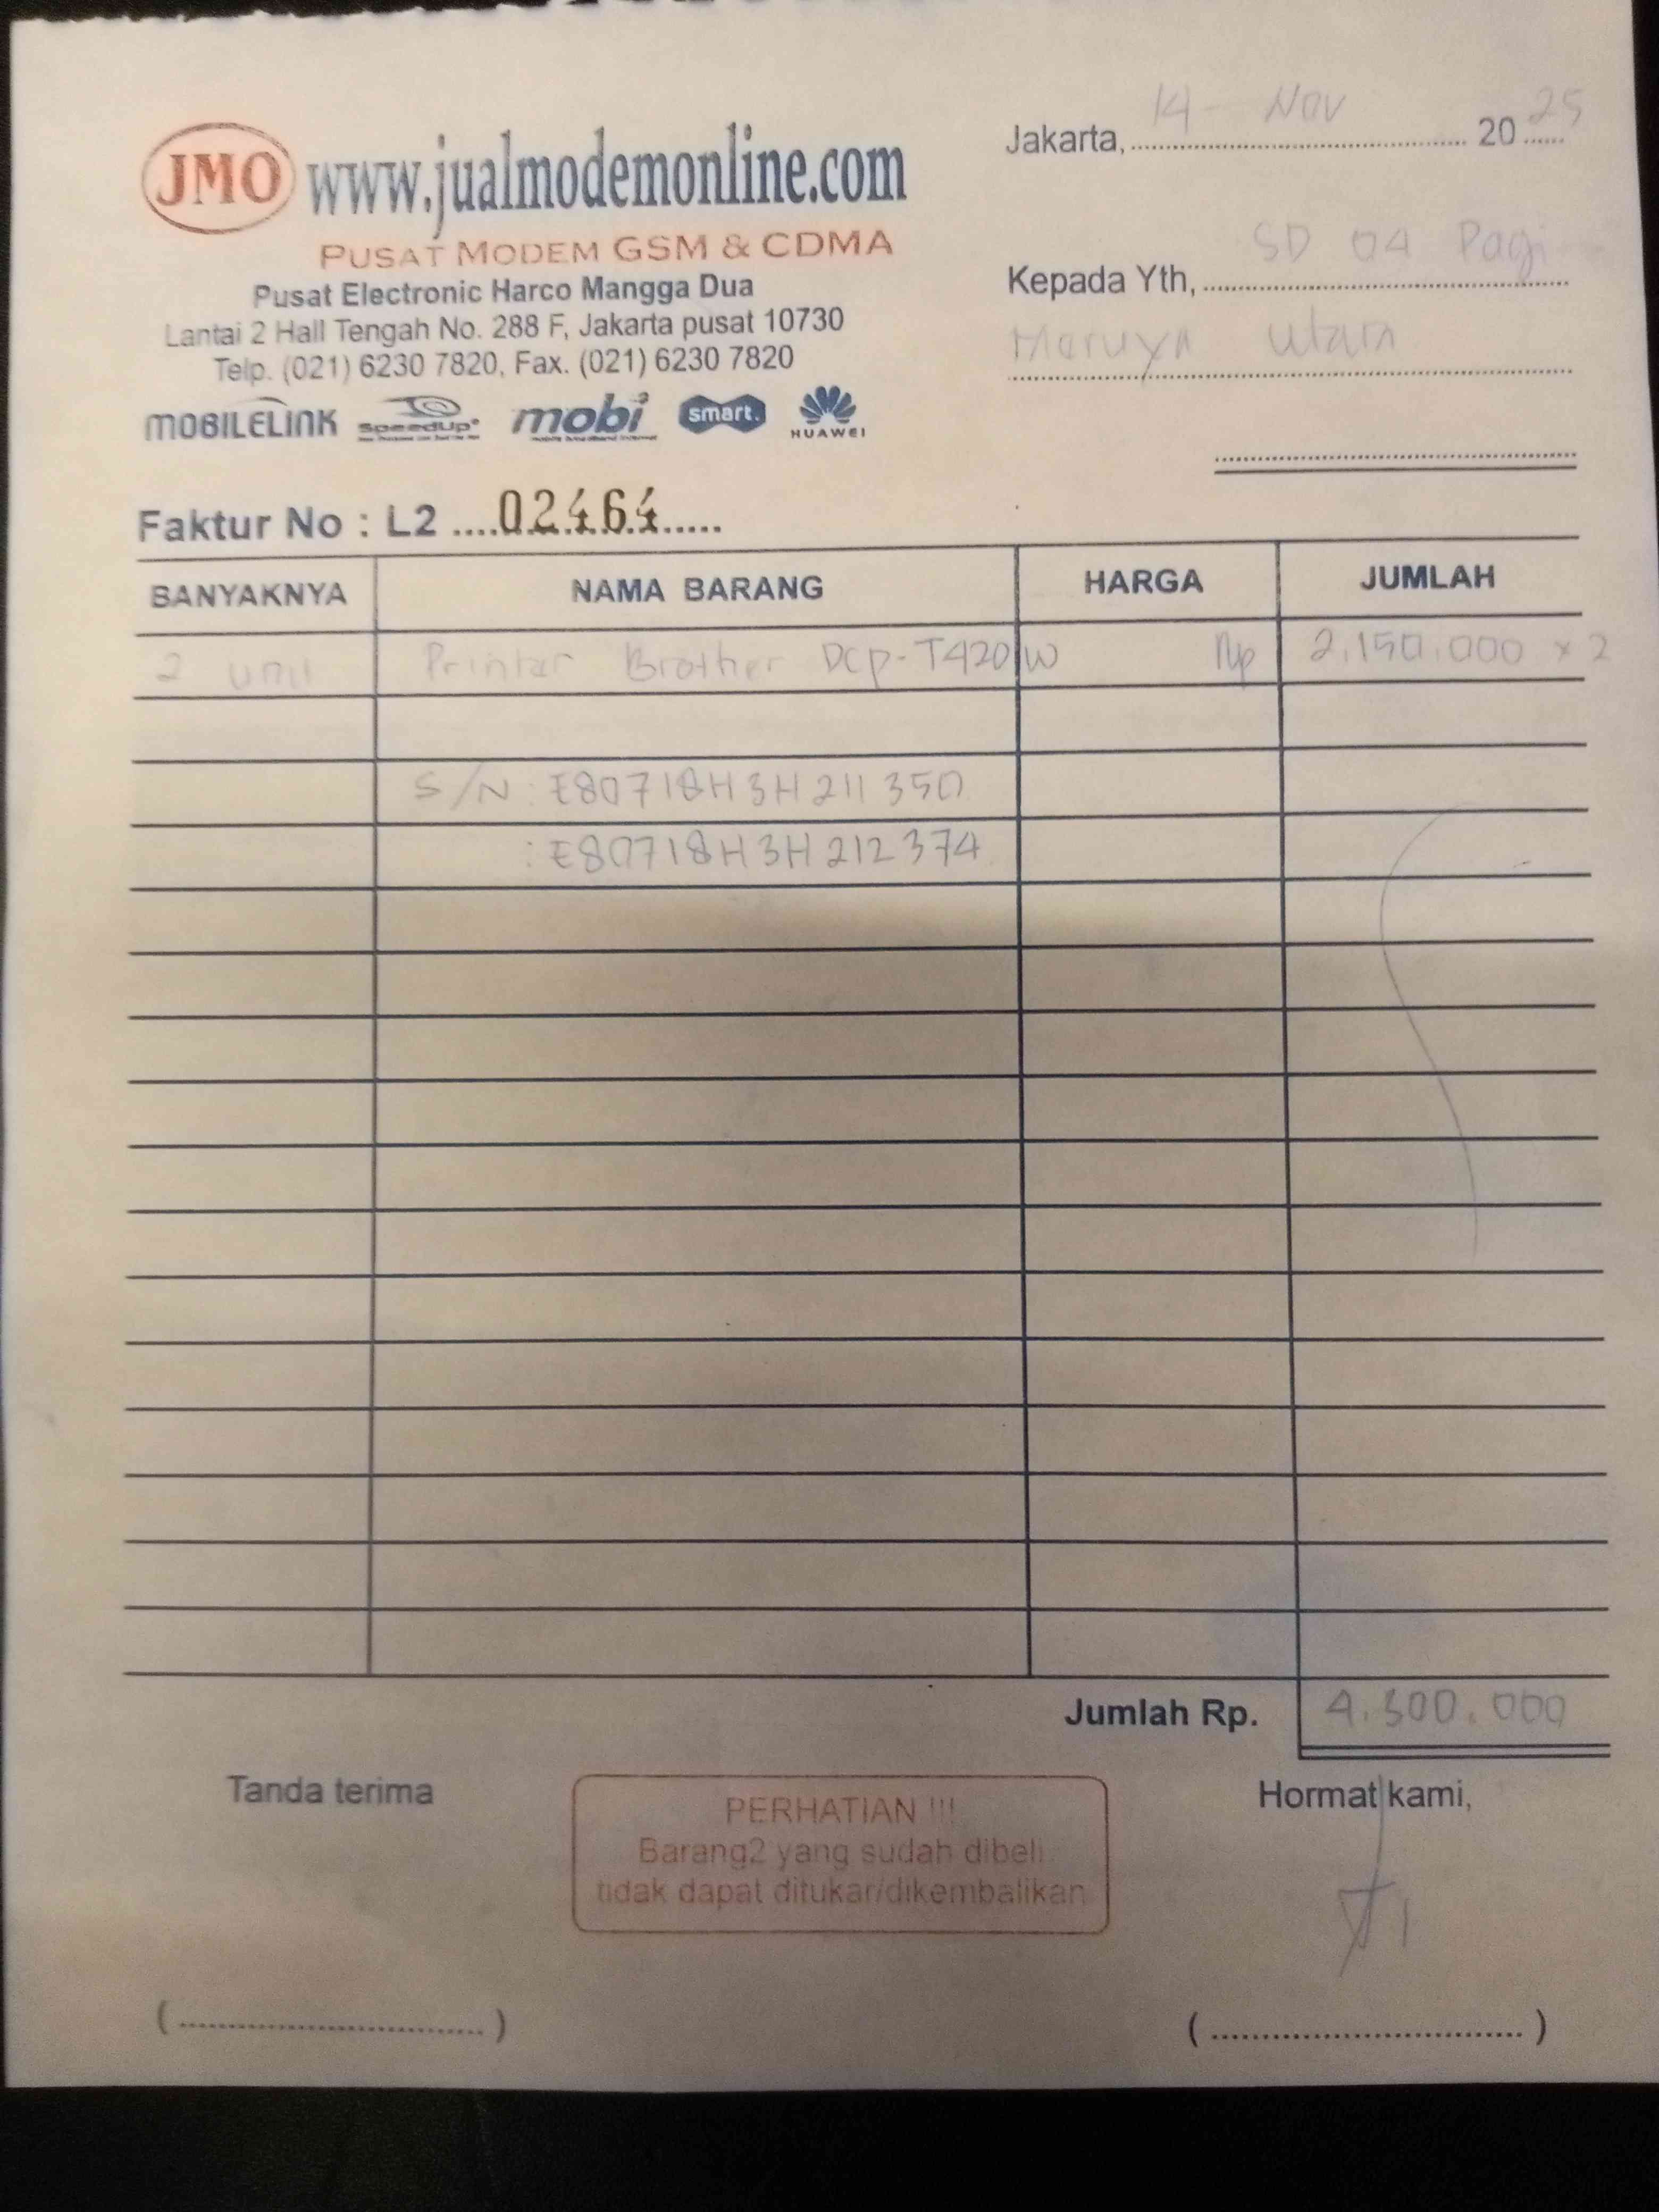 JMO www.jualmodemonline.com
PUSAT MODEM GSM & CDMA
Pusat Electronic Harco Mangga Dua
Lantai 2 Hall Tengah No. 288 F, Jakarta pusat 10730
Telp. (021) 6230 7820, Fax. (021) 6230 7820
MOBILELINK SpeedUp mobi smart. HUAWEI
Jakarta, 14 - Nov 20 25
Kepada Yth, SD 04 Pagi
Meruya Utara
Faktur No : L2 02464
BANYAKNYA NAMA BARANG HARGA JUMLAH
2 unit Printer Brother DCP-T420W Rp 2.150.000 x 2
S/N : E80718H3H211350
: E80718H3H212374
Jumlah Rp. 4.300.000
Tanda terima
PERHATIAN !!!
Barang2 yang sudah dibeli
tidak dapat ditukar/dikembalikan
Hormat kami,
(..............................)
(..............................)